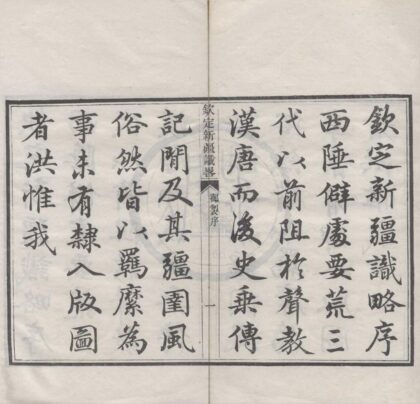 欽定新疆識略序
西陲僻處要荒三
代以前阻於聲教
漢唐而後史乘傳
欽定新疆識畧
御製序
一
記聞及其疆圉風
俗然皆以羈縻為
事未有隸入版圖
者洪惟我